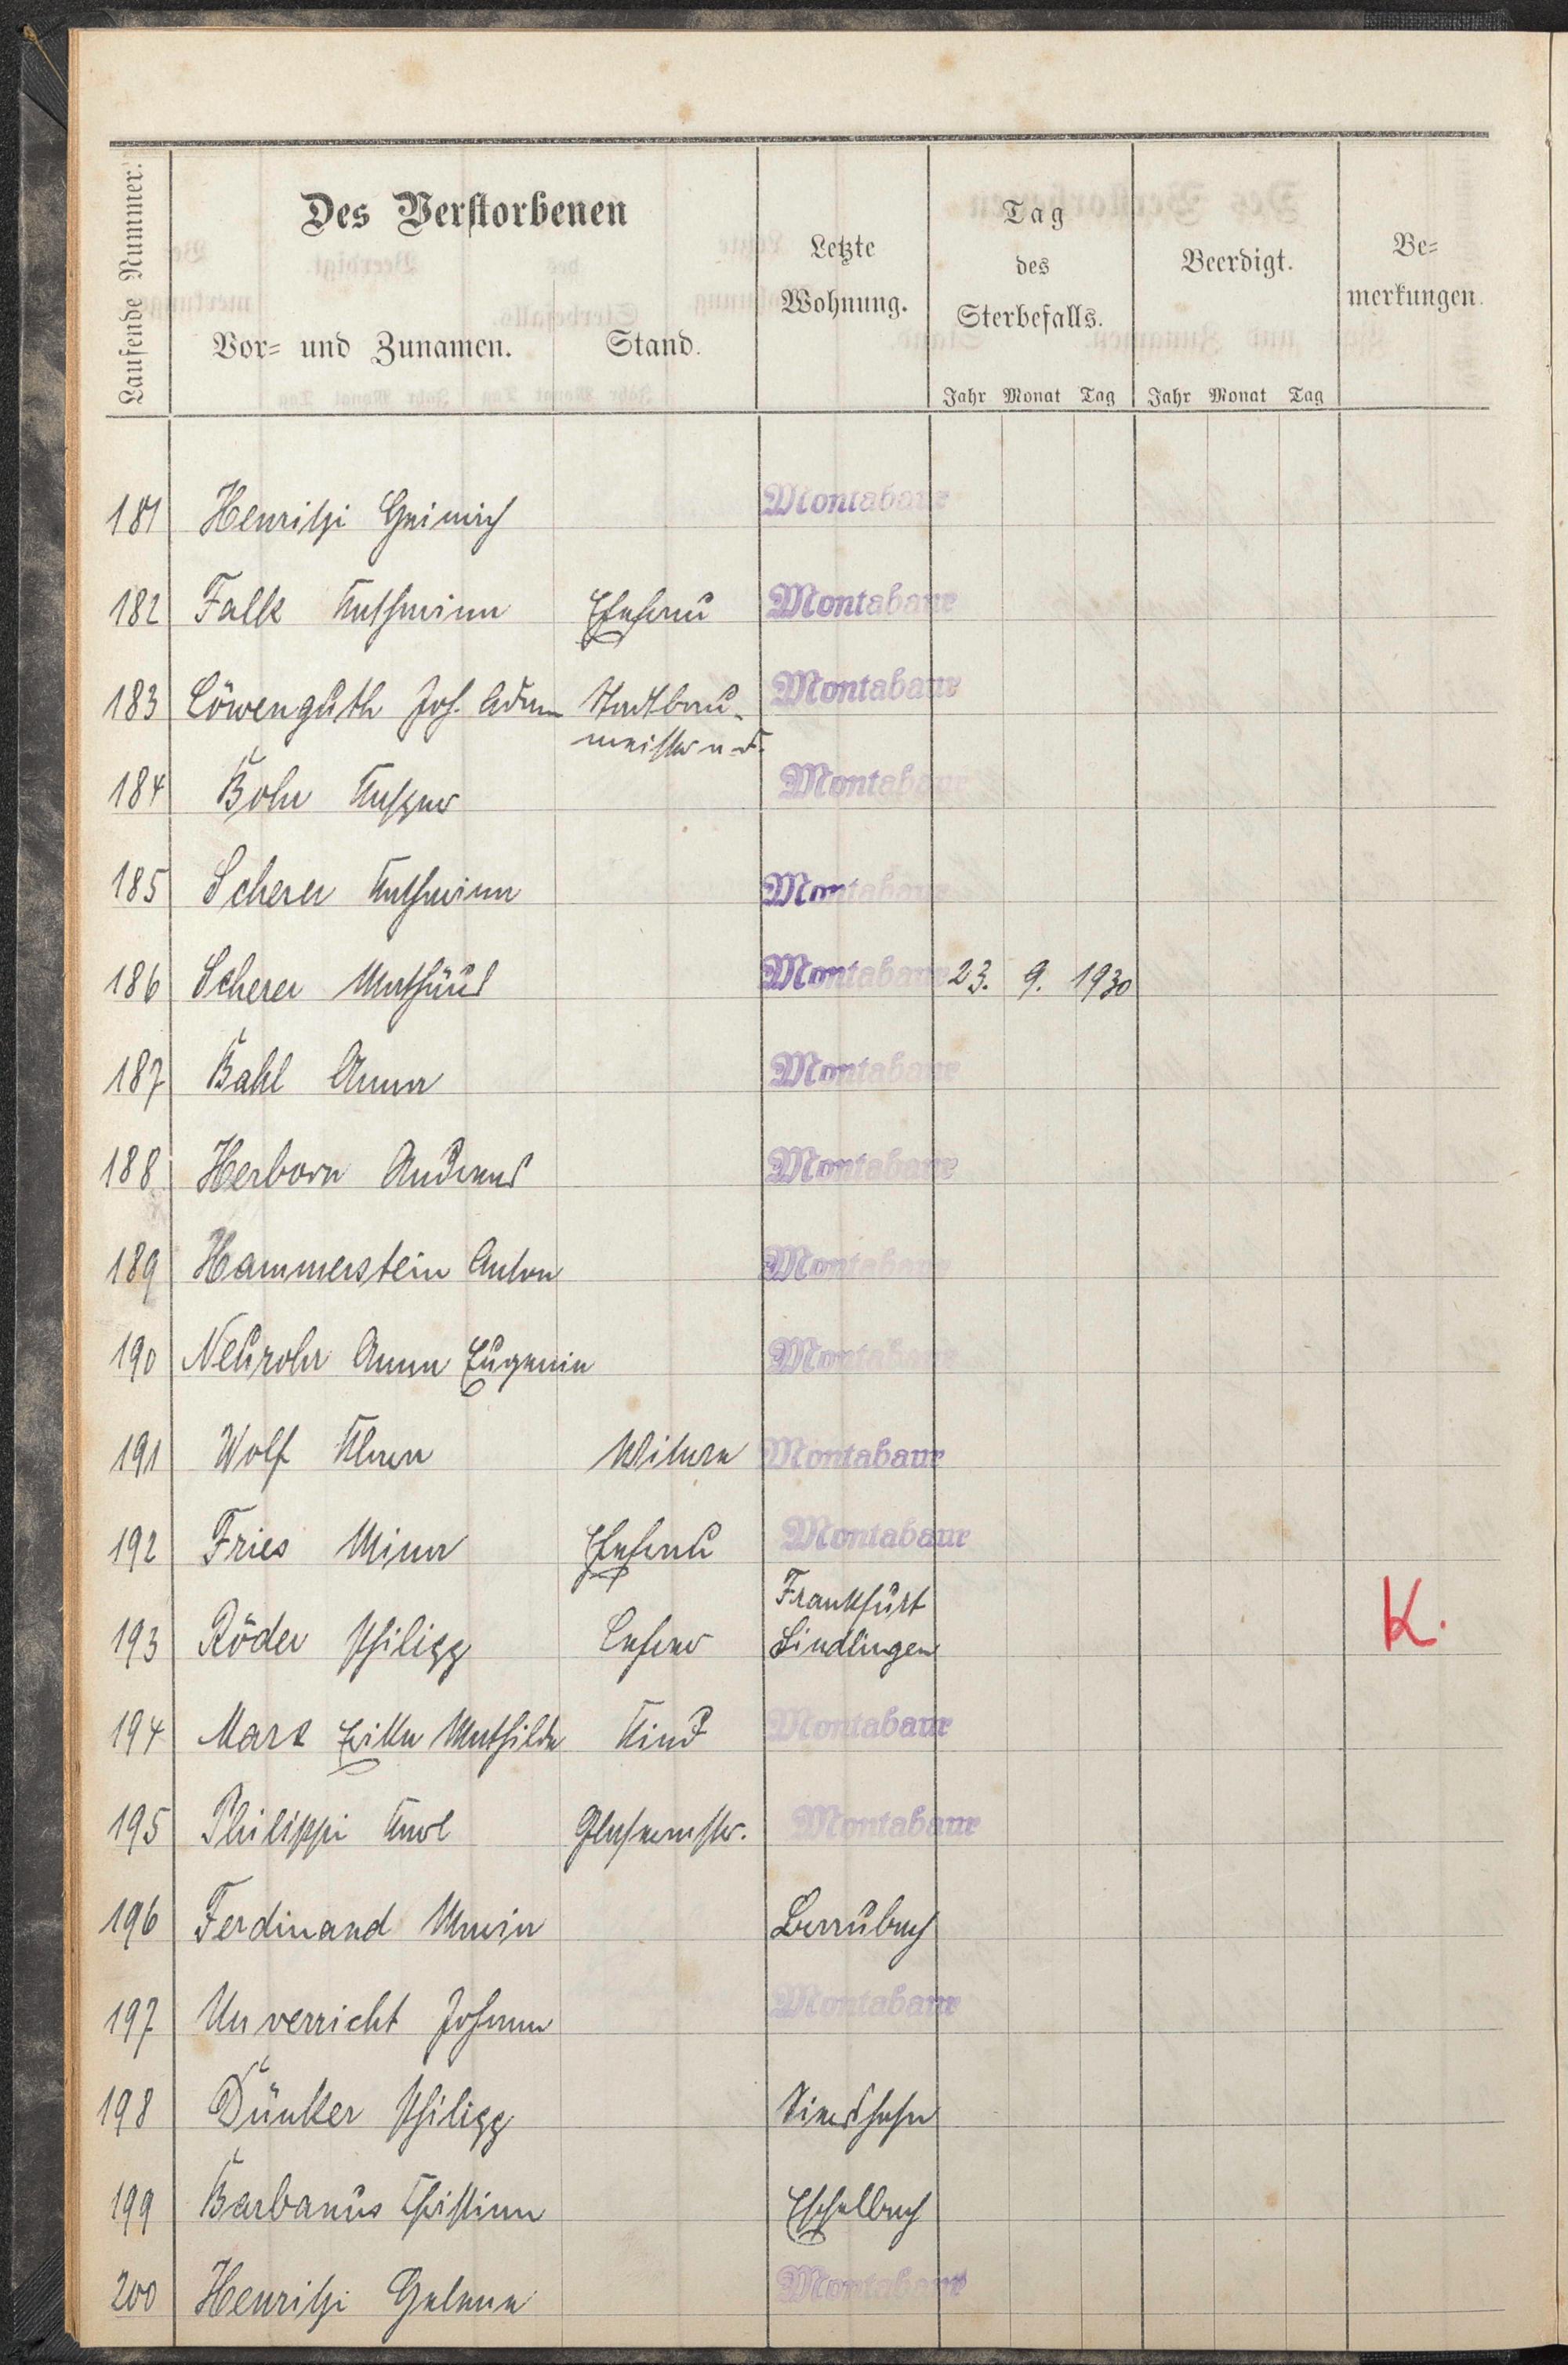 Laufende Nummer.
Des Verstorbenen
Vor- und Zunamen.
Stand.
Letzte
Wohnung.
Tag
des
Sterbefalls.
Jahr Monat Tag
Beerdigt.
Jahr Monat Tag
Be-
merkungen.
181 Henritzi Heinrich Montabaur
182 Falk Katharina Ehefrau Montabaur
183 Löwenguth Joh. Adam Stadtbau- Montabaur
meister a. D.
184 Bohr Kaspar Montabaur
185 Scherer Katharina Montabaur
186 Scherer Mathäus Montabaur 23. 9. 1930
187 Bahl Anna Montabaur
188 Herborn Andreas Montabaur
189 Hammerstein Anton Montabaur
190 Neurohr Anna Eugenie Montabaur
191 Wolf Klara Witwe Montabaur
192 Fries Mina Ehefrau Montabaur
Frankfurt
193 Röder Philipp Lehrer Sindlingen K.
194 Marx Erika Mathilde Kind Montabaur
195 Philippi Karl Glasermstr. Montabaur
196 Ferdinand Maria
197 Unverricht Johann Montabaur
198 Dünker Philipp
199 Barbanus Christina Eschelbach
200 Henritzi Helene Montabaur